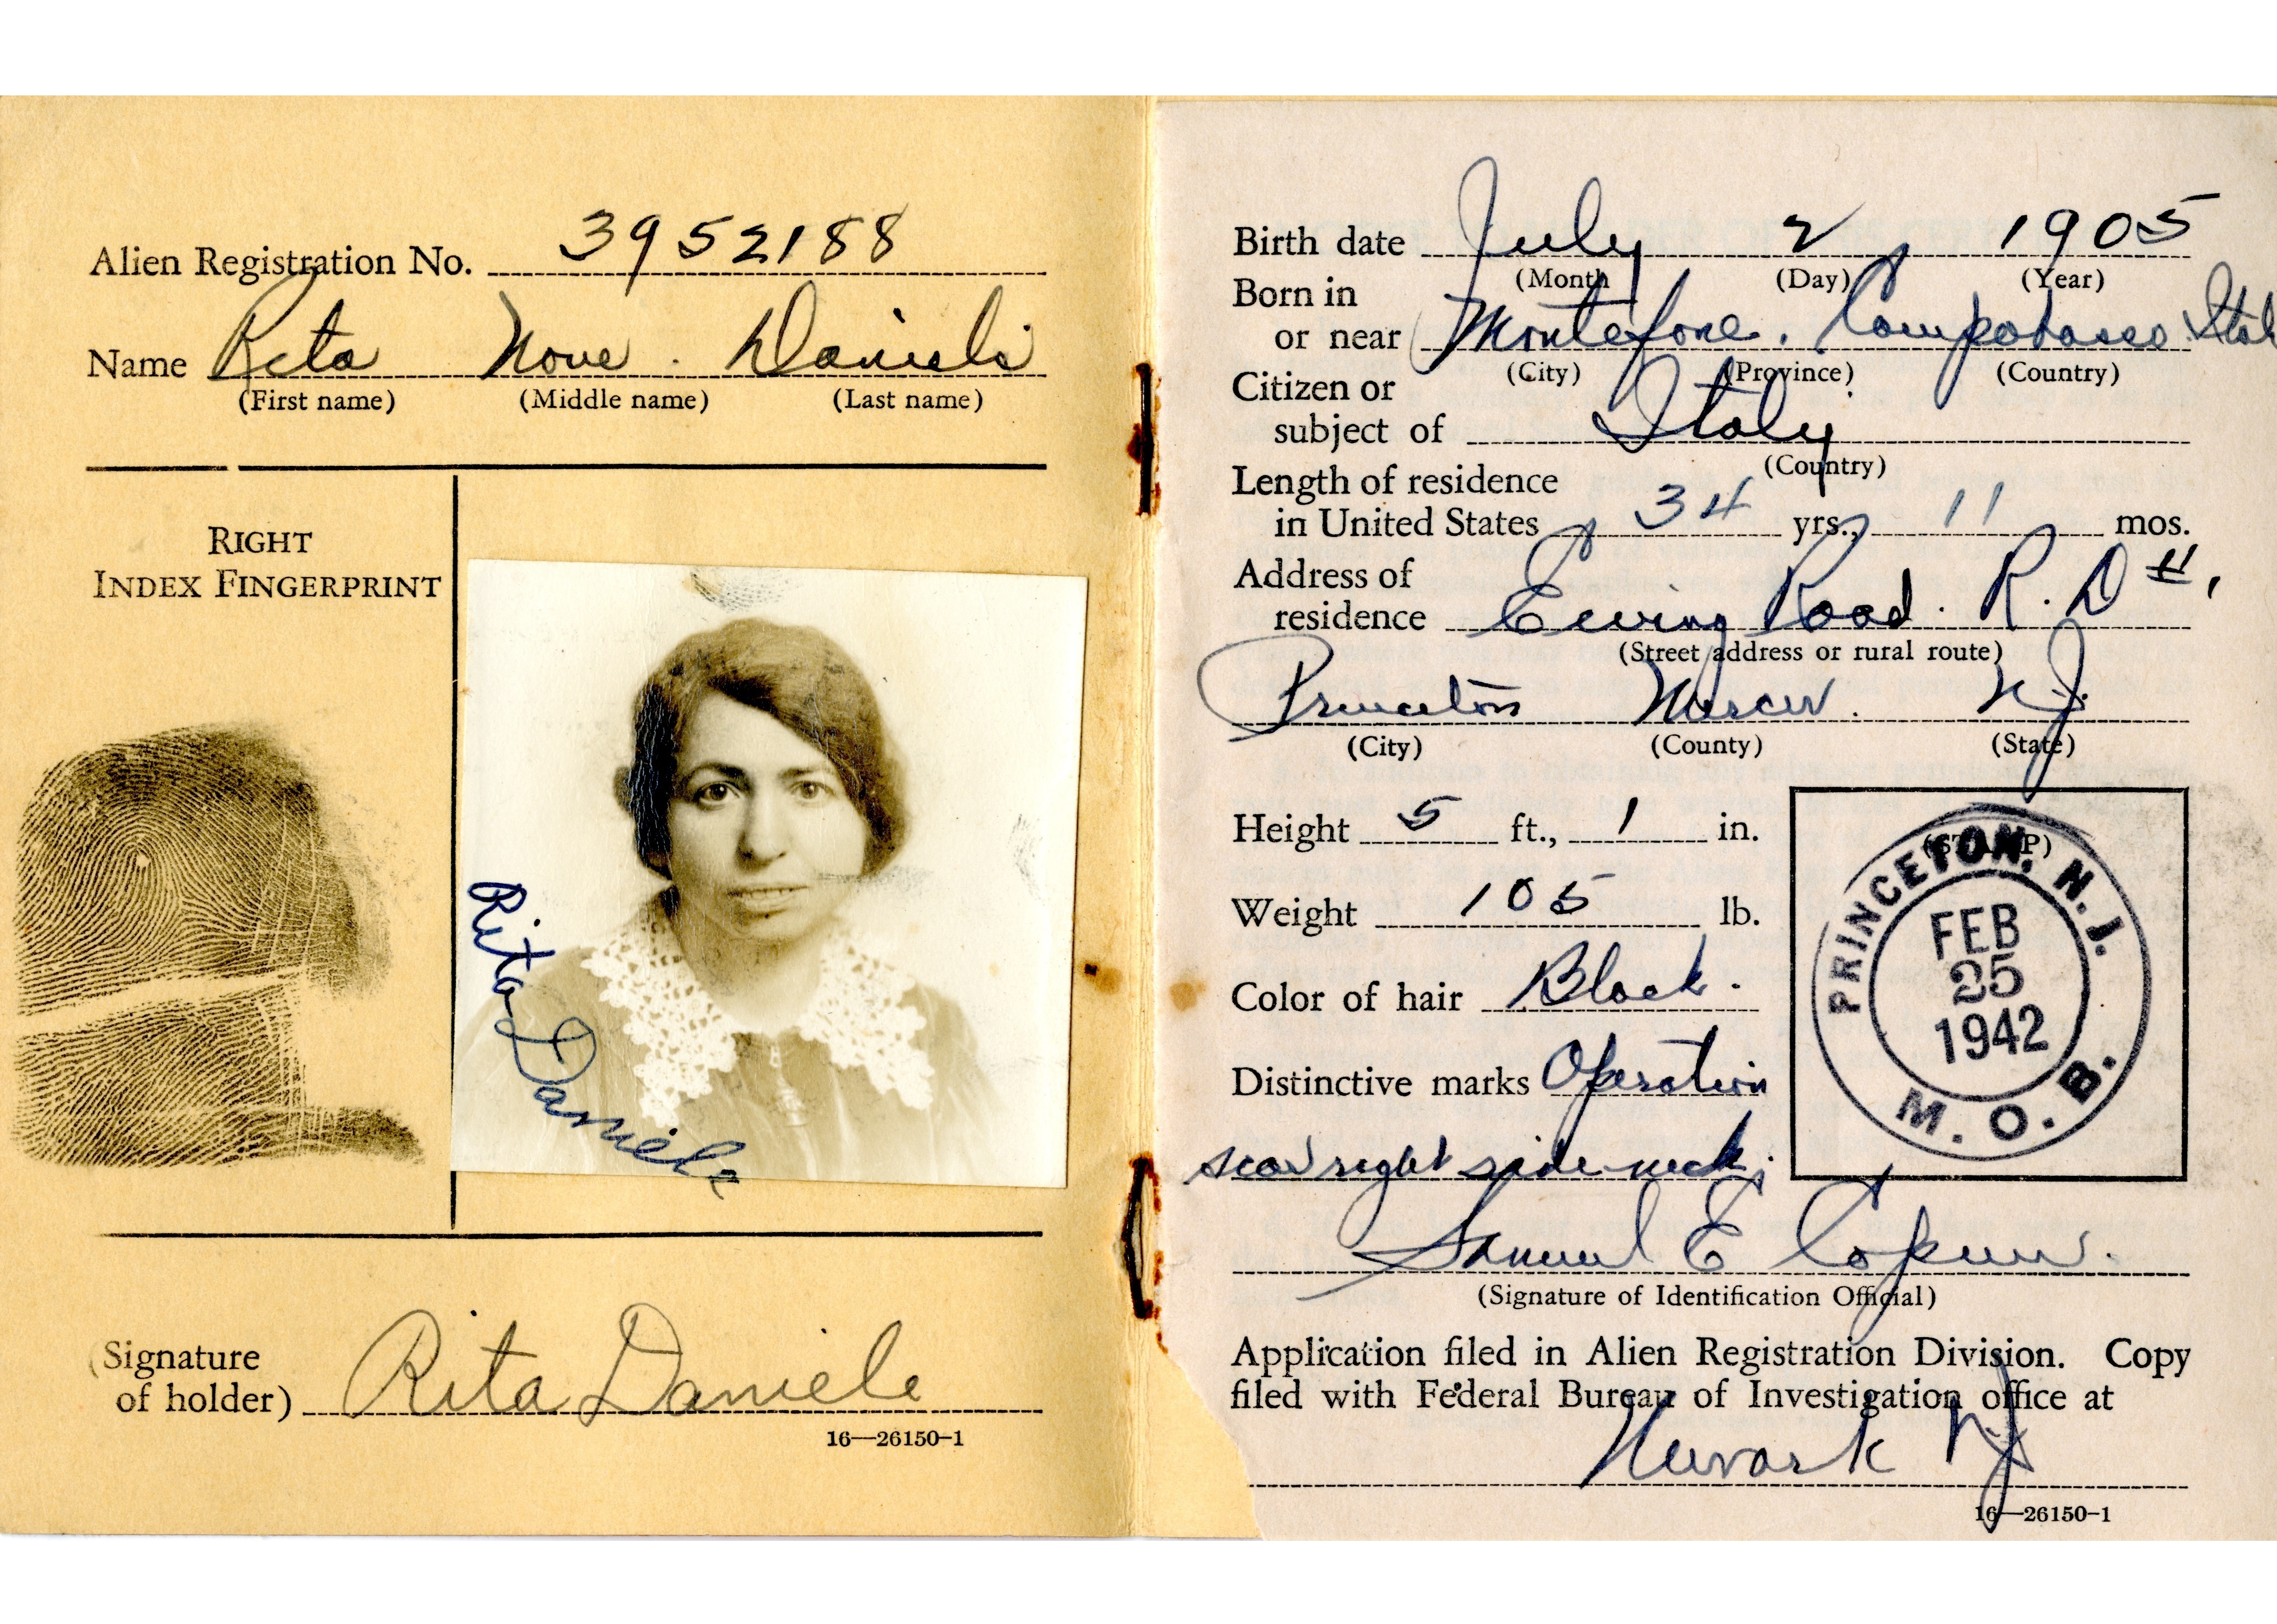 Alien Registration No. 3952188
Name Rita None. Daniele
(First name) (Middle name) (Last name)
RIGHT
INDEX FINGERPRINT
Rita Daniele
(Signature
of holder) Rita Daniele
16—26150-1
Birth date July 2 1905
(Month (Day) (Year)
Born in
or near Montefone. Campobasso Ital
(City) (Province) (Country)
Citizen or
subject of Italy
(Country)
Length of residence
in United States 34 yrs., 11 mos.
Address of
residence Ewing Road. R. D #1
(Street address or rural route)
Princeton Mercer. N.J.
(City) (County) (State)
Height 5 ft., 1 in.
Weight 105 lb.
Color of hair Black.
Distinctive marks Operation
scar right side neck.
(STAMP)
PRINCETON, N. J.
FEB
25
1942
M. O. B.
Samuel E
(Signature of Identification Official)
Application filed in Alien Registration Division. Copy
filed with Federal Bureau of Investigation office at
Newark NJ
16—26150-1